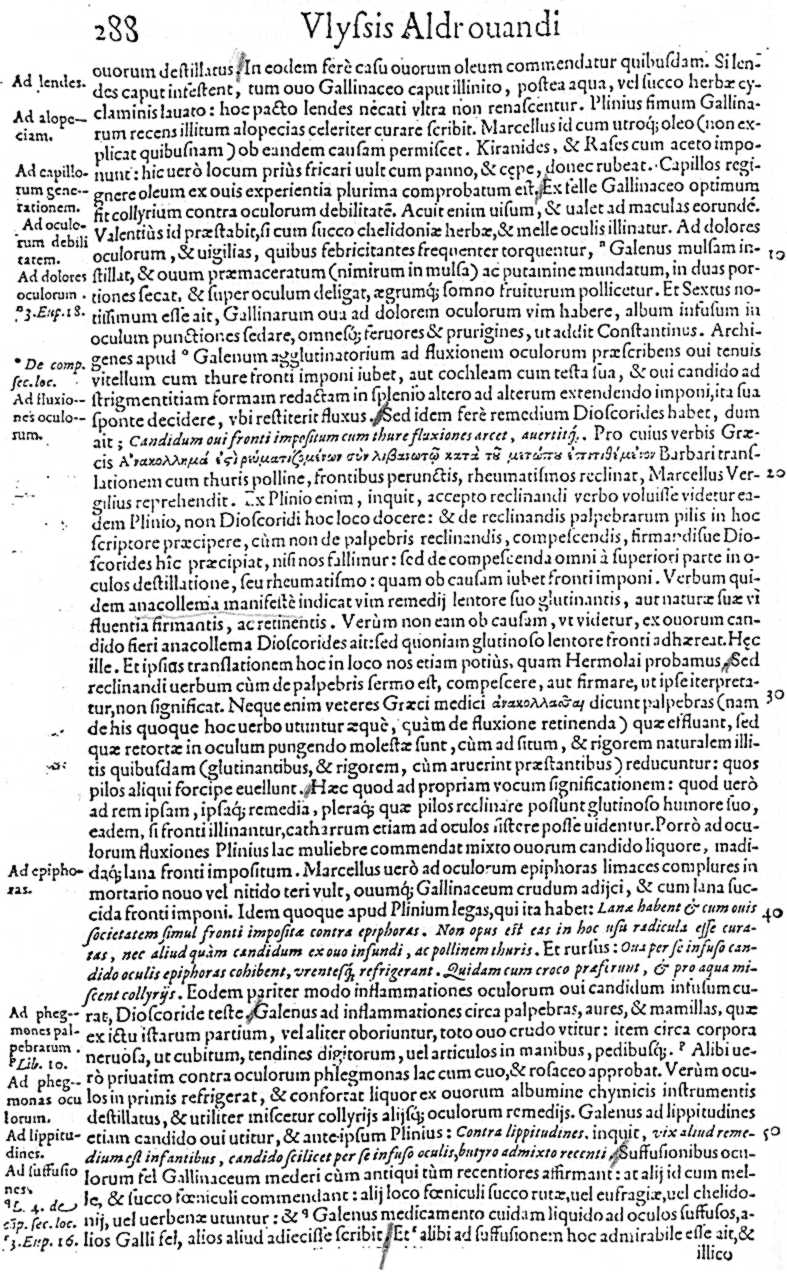 288 Vlyssis Aldrouandi
ouorum destillatus. In eodem ferè casu ouorum oleum commendatur quibusdam. Si len-
Ad lendes. des caput infestent, tum ouo Gallinaceo caput illinito, postea aqua, vel succo herbæ cy-
claminis lauato: hoc pacto lendes necati vltra non renascentur. Plinius fimum Gallina-
Ad alope- rum recens illitum alopecias celeriter curare scribit. Marcellus id cum utroq; oleo (non ex-
ciam. plicat quibusnam) ob eandem causam permiscet. Kiranides, & Rases cum aceto impo-
Ad capillo- nunt: hic uerò locum priùs fricari uult cum panno, & cępe, donec rubeat. Capillos regi-
rum gene- gnere oleum ex ouis experientia plurima comprobatum est. Ex felle Gallinaceo optimum
rationem. fit collyrium contra oculorum debilitatē. Acuit enim uisum, & ualet ad maculas eorundē.
Ad oculo- Valentiùs id præstabit, si cum succo chelidoniæ herbæ, & melle oculis illinatur. Ad dolores
rum debili
tatem. oculorum, & uigilias, quibus febricitantes frequenter torquentur, ⁿ Galenus mulsam in- 10
Ad dolores stillat, & ouum præmaceratum (nimirum in mulsa) ac putamine mundatum, in duas por-
oculorum. tiones secat, & super oculum deligat, ægrumq; somno fruiturum pollicetur. Et Sextus no-
ⁿ 3. Eup. 18. tissimum esse ait, Gallinarum oua ad dolorem oculorum vim habere, album infusum in
oculum punctiones sedare, omnesq; feruores & prurigines, ut addit Constantinus. Archi-
° De comp. genes apud ° Galenum agglutinatorium ad fluxionem oculorum præscribens oui tenuis
sec. loc. vitellum cum thure fronti imponi iubet, aut cochleam cum testa sua, & oui candido ad
Ad fluxio- strigmentitiam formam redactam in splenio altero ad alterum extendendo imponi, ita sua
nes oculo- sponte decidere, vbi restiterit fluxus. Sed idem ferè remedium Dioscorides habet, dum
rum. ait; Candidum oui fronti impositum cum thure fluxiones arcet, auertitq;. Pro cuius verbis Græ-
cis Ἀνακόλλημά ἐςὶ ῥευματιζομένων σὺν λιβανωτῷ κατὰ τοῦ μετώπου ἐπιτιθέμενον Barbari transl-
lationem cum thuris polline, frontibus perunctis, rheumatismos reclinat, Marcellus Ver- 20
gilius reprehendit. Ex Plinio enim, inquit, accepto reclinandi verbo voluisse videtur ea-
dem Plinio, non Dioscoridi hoc loco docere: & de reclinandis palpebrarum pilis in hoc
scriptore præcipere, cùm non de palpebris reclinandis, compescendis, firmandisue Dio-
scorides hîc præcipiat, nisi nos fallimur: sed de compescenda omni à superiori parte in o-
culos destillatione, seu rheumatismo: quam ob causam iubet fronti imponi. Verbum qui-
dem anacollema manifestè indicat vim remedij lentore suo glutinantis, aut naturæ suæ vi
fluentia firmantis, ac retinentis. Verùm non eam ob causam, vt videtur, ex ouorum can-
dido fieri anacollema Dioscorides ait: sed quoniam glutinoso lentore fronti adhæreat. Hęc
ille. Et ipsius translationem hoc in loco nos etiam potiùs, quam Hermolai probamus. Sed
reclinandi uerbum cùm de palpebris sermo est, compescere, aut firmare, ut ipse iterpreta-
tur, non significat. Neque enim veteres Græci medici ἀνακολλᾶσθαι dicunt palpebras (nam 30
de his quoque hoc uerbo utuntur æquè, quàm de fluxione retinenda) quæ effluant, sed
quæ retortæ in oculum pungendo molestæ sunt, cùm ad situm, & rigorem naturalem illi-
tis quibusdam (glutinantibus, & rigorem, cùm aruerint præstantibus) reducuntur: quos
pilos aliqui forcipe euellunt. Hæc quod ad propriam vocum significationem: quod uerò
ad rem ipsam, ipsaq; remedia, pleraq; quæ pilos reclinare possunt glutinoso humore suo,
eadem, si fronti illinantur, catharrum etiam ad oculos sistere posse uidentur. Porrò ad ocu-
lorum fluxiones Plinius lac muliebre commendat mixto ouorum candido liquore, madi-
Ad epipho- daq; lana fronti impositum. Marcellus uerò ad oculorum epiphoras limaces complures in
ras. mortario nouo vel nitido teri vult, ouumq; Gallinaceum crudum adijci, & cum lana suc-
cida fronti imponi. Idem quoque apud Plinium legas, qui ita habet: Lanæ habent & cum ouis 40
societatem simul fronti impositæ contra epiphoras. Non opus est eas in hoc usu radicula esse cura-
tas, nec aliud quàm candidum ex ouo infundi, ac pollinem thuris. Et rursus: Oua per se infuso can-
dido oculis epiphoras cohibent, vrentesq; refrigerant. Quidam cum croco præferunt, & pro aqua mi-
scent collyrijs. Eodem pariter modo inflammationes oculorum oui candidum infusum cu-
Ad pheg- rat, Dioscoride teste. Galenus ad inflammationes circa palpebras, aures, & mamillas, quæ
mones pal- ex ictu istarum partium, vel aliter oboriuntur, toto ouo crudo vtitur: item circa corpora
pebrarum. neruosa, ut cubitum, tendines digitorum, uel articulos in manibus, pedibusq;. ᵖ Alibi ue-
ᵖ Lib. 10.
Ad pheg- rò priuatim contra oculorum phlegmonas lac cum ouo, & rosaceo approbat. Verùm ocu-
monas ocu los in primis refrigerat, & confortat liquor ex ouorum albumine chymicis instrumentis
lorum. destillatus, & utiliter miscetur collyrijs alijsq; oculorum remedijs. Galenus ad lippitudines
Ad lippitu- etiam candido oui utitur, & ante ipsum Plinius: Contra lippitudines, inquit, vix aliud reme- 50
dines. dium est infantibus, candido scilicet per se infuso oculis, butyro admixto recenti. Suffusionibus ocu-
Ad suffusio lorum fel Gallinaceum mederi cùm antiqui tùm recentiores affirmant: at alij id cum mel-
nes. le, & succo fœniculi commendant: alij loco fœniculi succo rutæ, uel eufragiæ, uel chelido-
ᑫ L. 4. de
cōp. sec. loc. nij, uel uerbenæ utuntur: & ᑫ Galenus medicamento cuidam liquido ad oculos suffusos, a-
ʳ 3. Eup. 16. lios Galli fel, alios aliud adiecisse scribit. Et ʳ alibi ad suffusionem hoc admirabile esse ait, &
illico